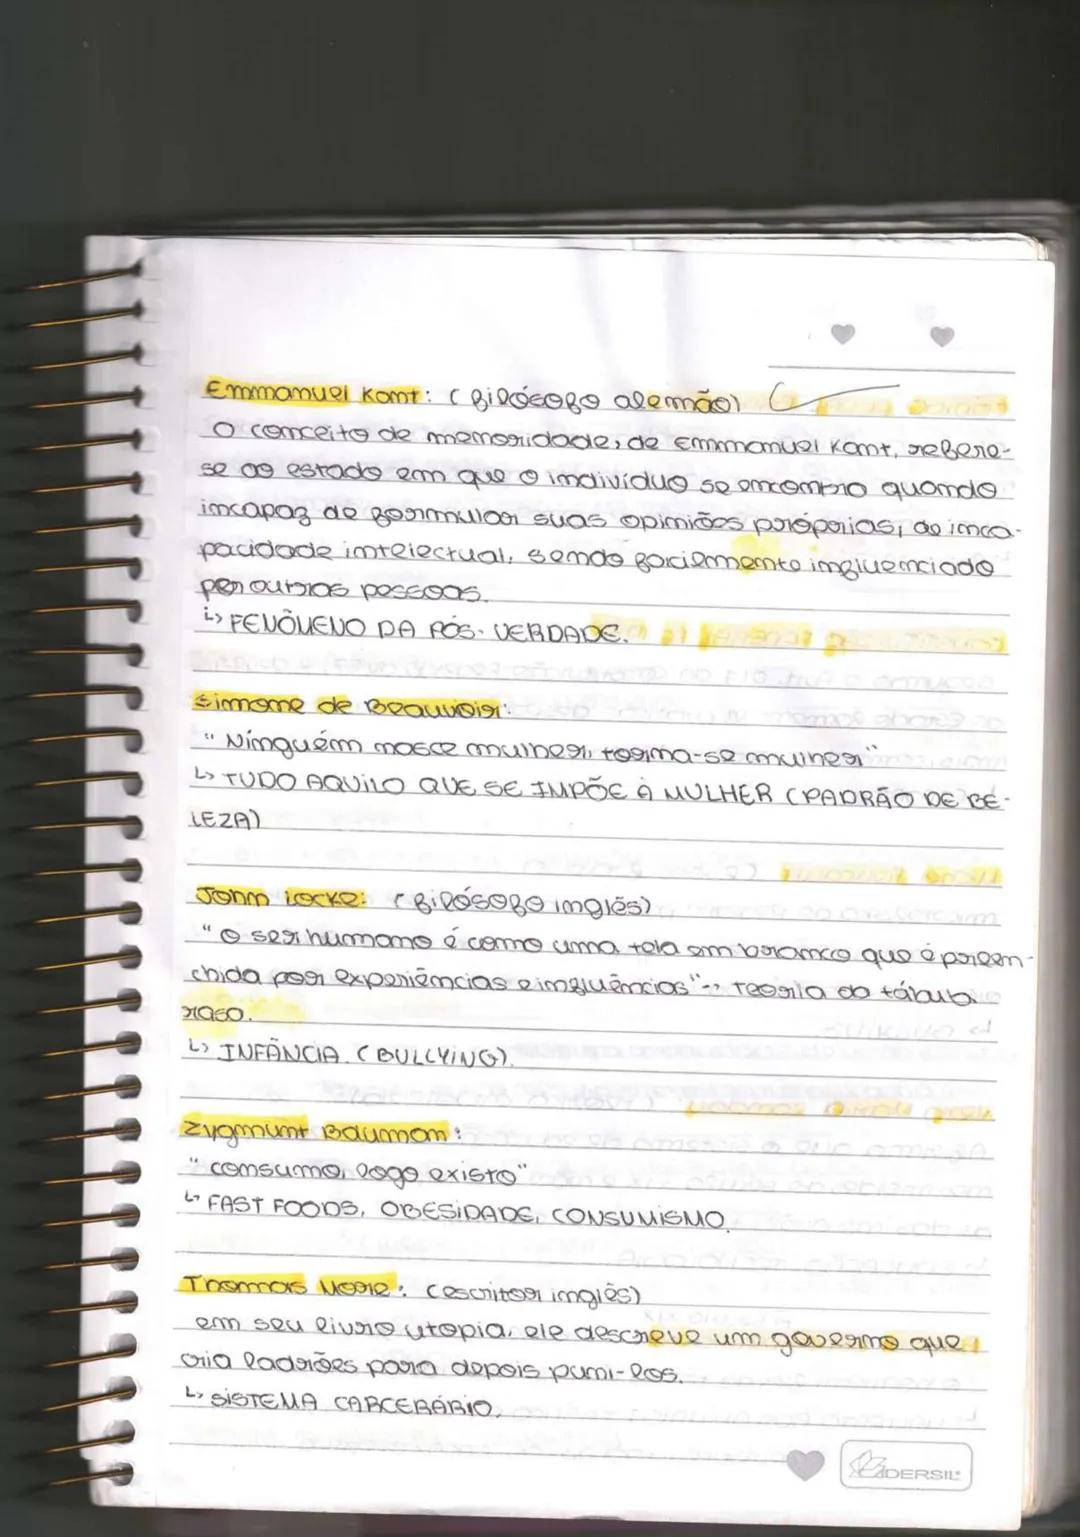 Emmanuel Kant: (filósofo alemão)
O conceito de menoridade, de Emmanuel Kant, refere-
se ao estado em que o indivíduo se encontra quando
incapaz de formular suas opiniões próprias, de inca-
pacidade intelectual, sendo facilmente influenciado
por outras pessoas.
↳ FENÔMENO DA PÓS-VERDADE.
Simone de Beauvoir:
"Ninguém nasce mulher, torna-se mulher"
↳ TUDO AQUILO QUE SE IMPÕE À MULHER (PADRÃO DE BE-
LEZA)
John Locke: (filósofo inglês)
"O ser humano é como uma tela em branco que é preen-
chida por experiências e influências" → Teoria da tábula
rasa.
↳ INFÂNCIA. (BULLYING).
Zygmunt Bauman:
"consumo, logo existo"
↳ FAST FOODS, OBESIDADE, CONSUMISMO.
Thomas More: (escritor inglês)
em seu livro utopia, ele descreve um governo que
cria ladrões para depois puni-los.
↳ SISTEMA CARCERÁRIO.